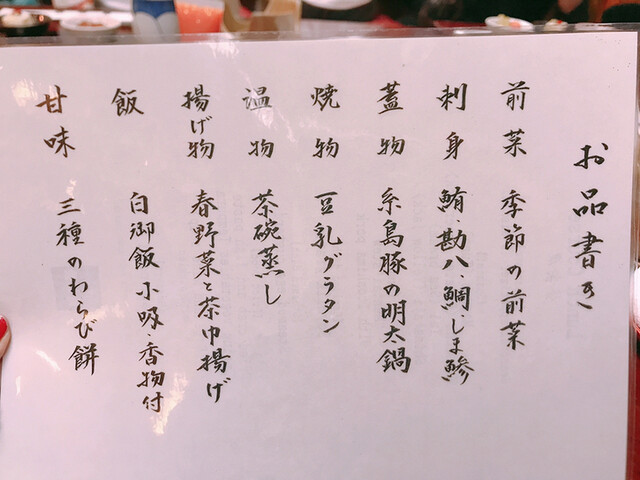 お品書き
前菜 季節の前菜
刺身 鮪・勘八・鯛・しま鯵
蓋物 糸島豚の明太鍋
焼物 豆乳グラタン
温物 茶碗蒸し
揚げ物 春野菜と茶巾揚げ
飯 白御飯 小吸・香物付
甘味 三種のわらび餅